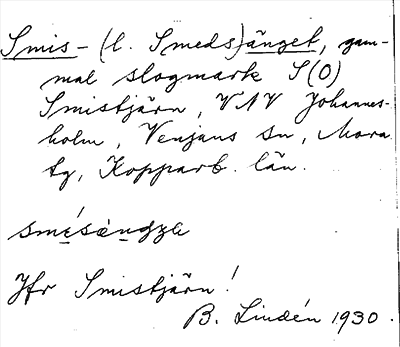 Smis- (l. Smeds)änget, gam-
mal slogmark S(O)
Smistjärn, VNV Johannes-
holm, Venjans sn, Mora
tg, Kopparb. län.
Jfr Smistjärn!
B. Lindén 1930.